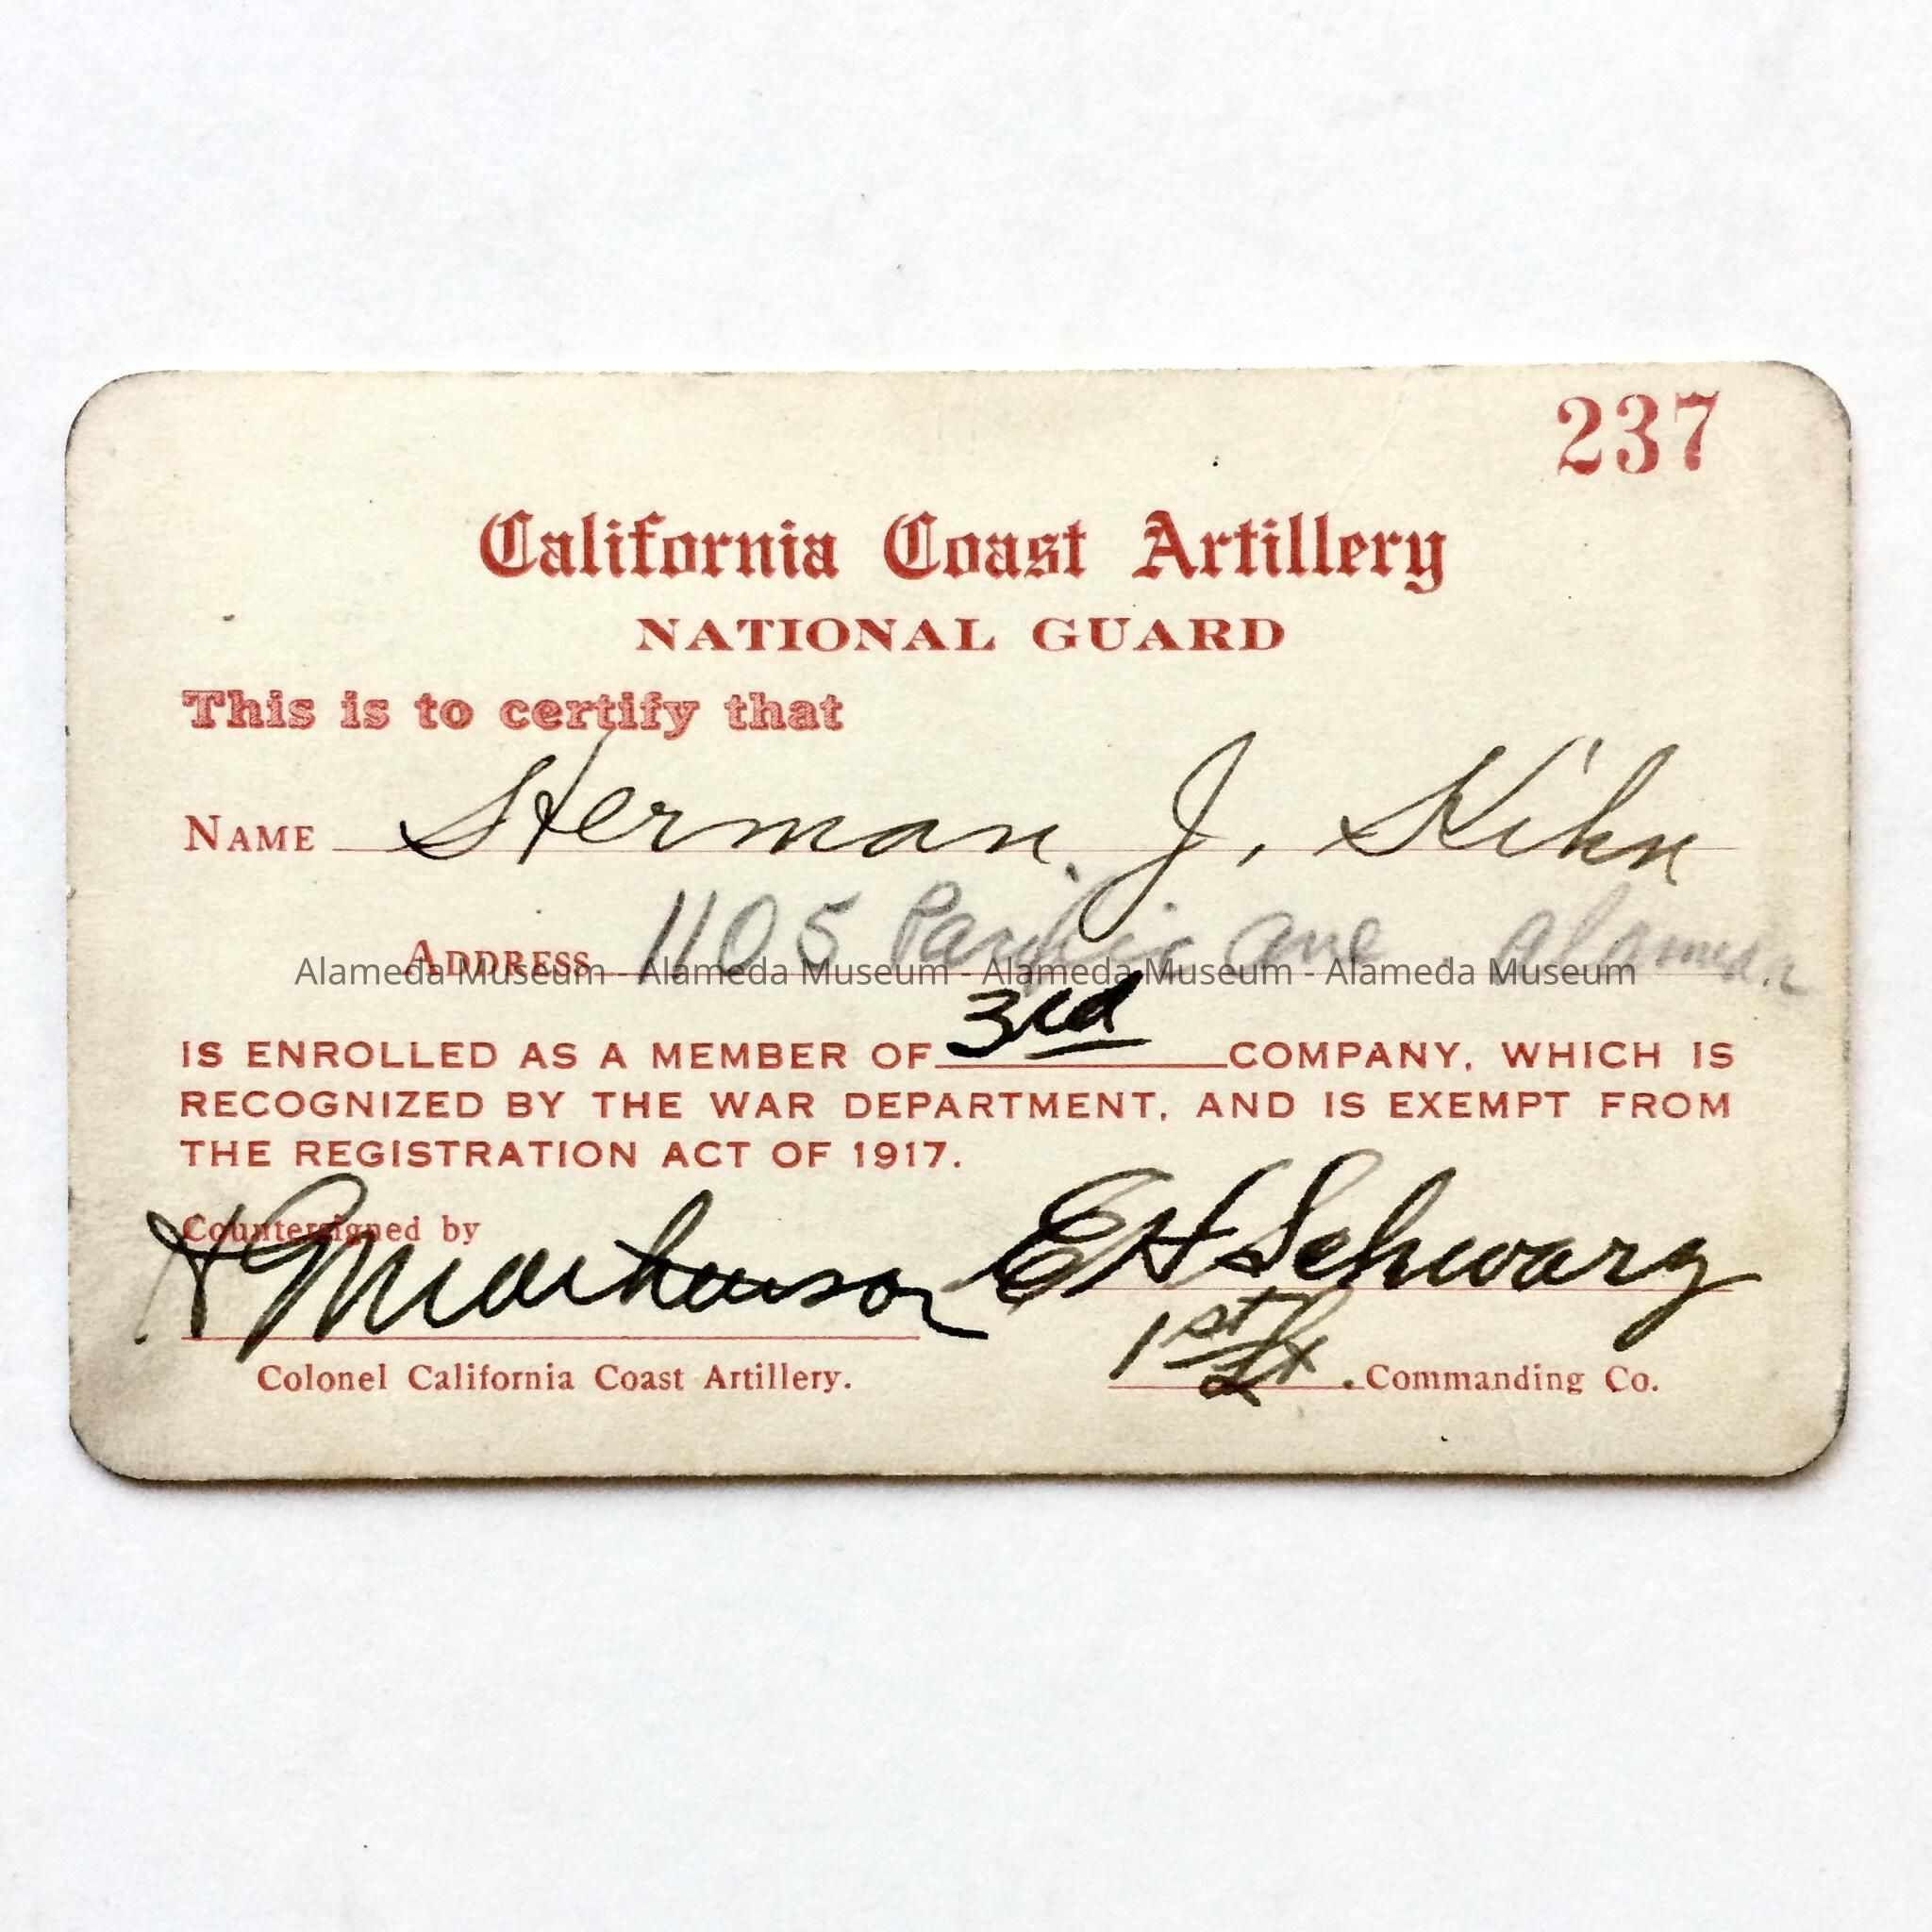 237
California Coast Artillery
NATIONAL GUARD
This is to certify that
NAME Herman J. Kihn
ADDRESS 1105 Pacific ave Alameda
Alameda Museum - Alameda Museum - Alameda Museum - Alameda Museum
IS ENROLLED AS A MEMBER OF 3rd COMPANY, WHICH IS
RECOGNIZED BY THE WAR DEPARTMENT, AND IS EXEMPT FROM
THE REGISTRATION ACT OF 1917.
Countersigned by
E H Schwarz
1st Lt. Commanding Co.
Colonel California Coast Artillery.